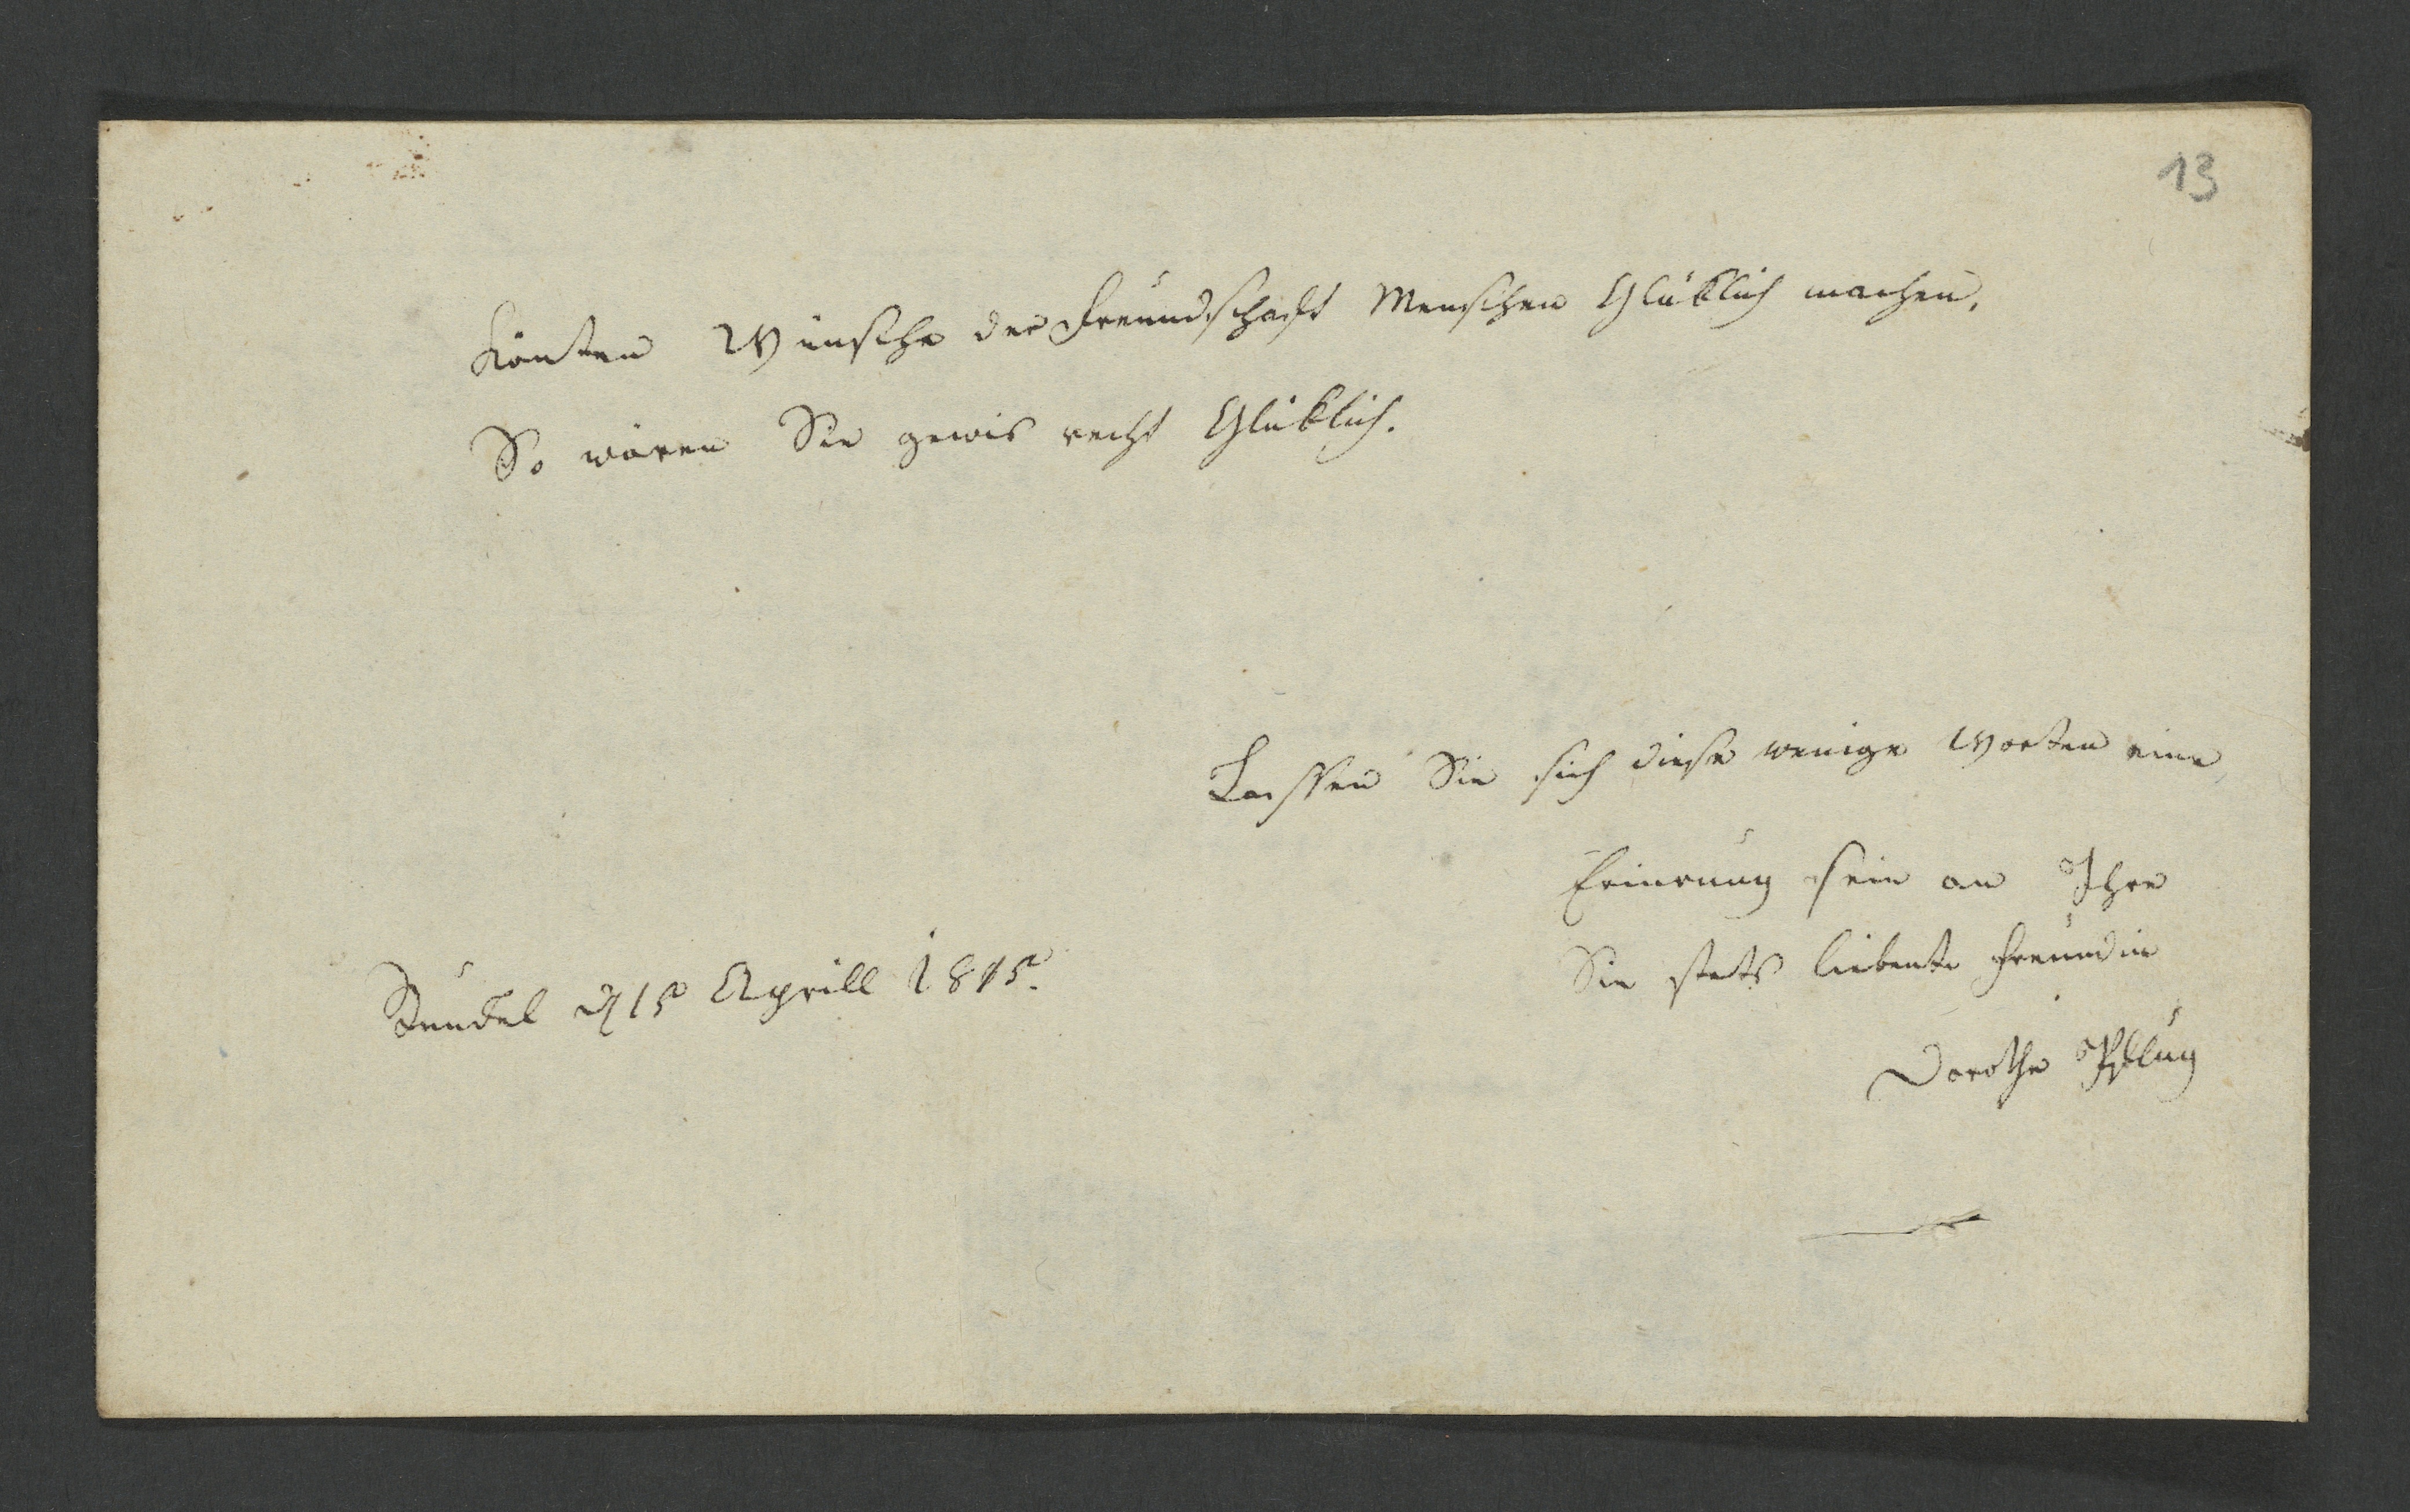 13
Könten Wünsche der Freundschaft Menschen Glüklich machen,
So wären Sie gewis recht Glüklich.
Lassen Sie sich diese wenige Worten eine
Erinrung sein an Ihre
Sie stets liebente Freundin
Dorothe Pflug
d 15 Aprill 1815.